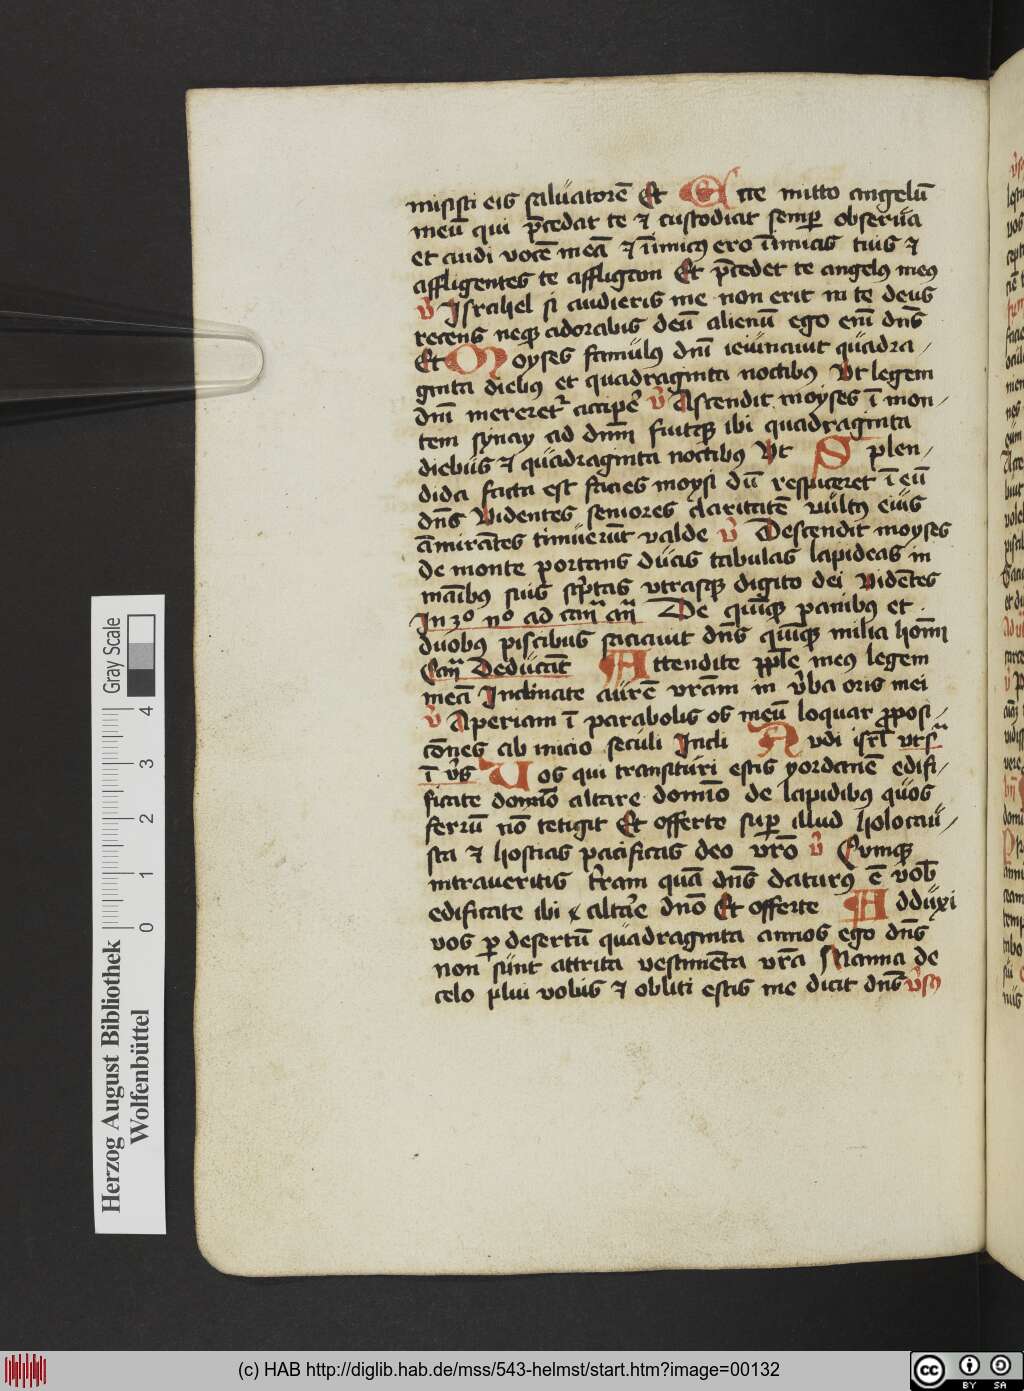 misisti eis saluatorē Et Ecce mitto angelū
meū qui p̄cedat te ⁊ custodiat semp̲ obserua
et audi vocē meā ⁊ īimicꝰ ero īimicis tuis ⁊
affligentes te affligam Et p̄cedet te angelꝰ meꝰ
v̉ Israhel si audieris me non erit in te deus
recens neqꝫ adorabis deū alienū ego em̄ dn̄s
Et Moyses famulꝰ dn̄i ieiunauit quadra
ginta diebꝰ et quadraginta noctibꝰ Vt legem
dn̄i mereretᷣ accipe᷑ v̉ Ascendit moyses ī mon
tem synay ad dn̄m fuitqꝫ ibi quadraginta
diebus ⁊ quadraginta noctibꝰ Vt Splen
dida facta est facies moysi dū respiceret ī eū
dn̄s Videntes seniores claritatē vultꝰ eius
āmirātes timuerūt valde v̉ Descendit moyses
de monte portans duas tabulas lapideas in
māibus suis sc̉ptas vtrasqꝫ digito dei Vidētes
In 3º nº ad can̄ an̄ De quīqꝫ panibꝰ et
duobꝰ piscibus saciauit dn̄s quīqꝫ milia hom̄
Can̄ Deducāt Attendite pp̄le meꝰ legem
meā Inclinate aurē vr̄am in v̉ba oris mei
v̉ Aperiam ī parabolis os meū loquar p̲posi
cōnes ab inicio seculi Incli Audi isrl̄ vtsᷓ
ī v̉s Vos qui transituri estis yordanē edifi
ficate domīo altare domīo de lapidibꝰ quos
ferrū nō tetigit Et offerte sup̲ illud holocau
sta ⁊ hostias pacificas deo vr̄o v̉ Cumqꝫ
intraueritis t̉ram quā dn̄s daturꝰ ē vob̄
edificate ibi altar̉e dn̄o Et offerte Adduxi
vos p̲ desertū quadraginta annos ego dn̄s
non sunt attrita vestimēta vr̄a Manna de
celo plui vobis ⁊ obliti estis me dicit dn̄s v̉sꝰ
Gray Scale
0 1 2 3 4
Herzog August Bibliothek
Wolfenbüttel
(c) HAB http://diglib.hab.de/mss/543-helmst/start.htm?image=00132
cc BY SA